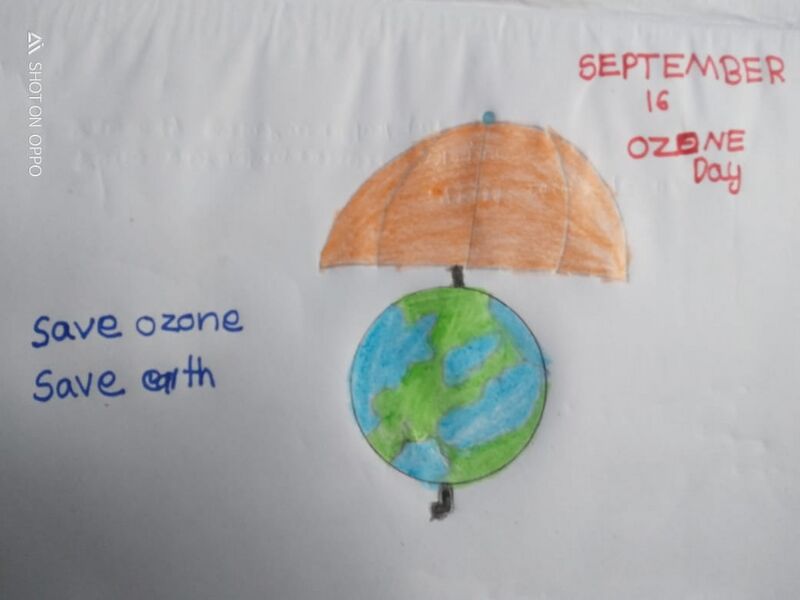 SHOT ON OPPO
SEPTEMBER
16
OZONE
Day
Save ozone
Save earth